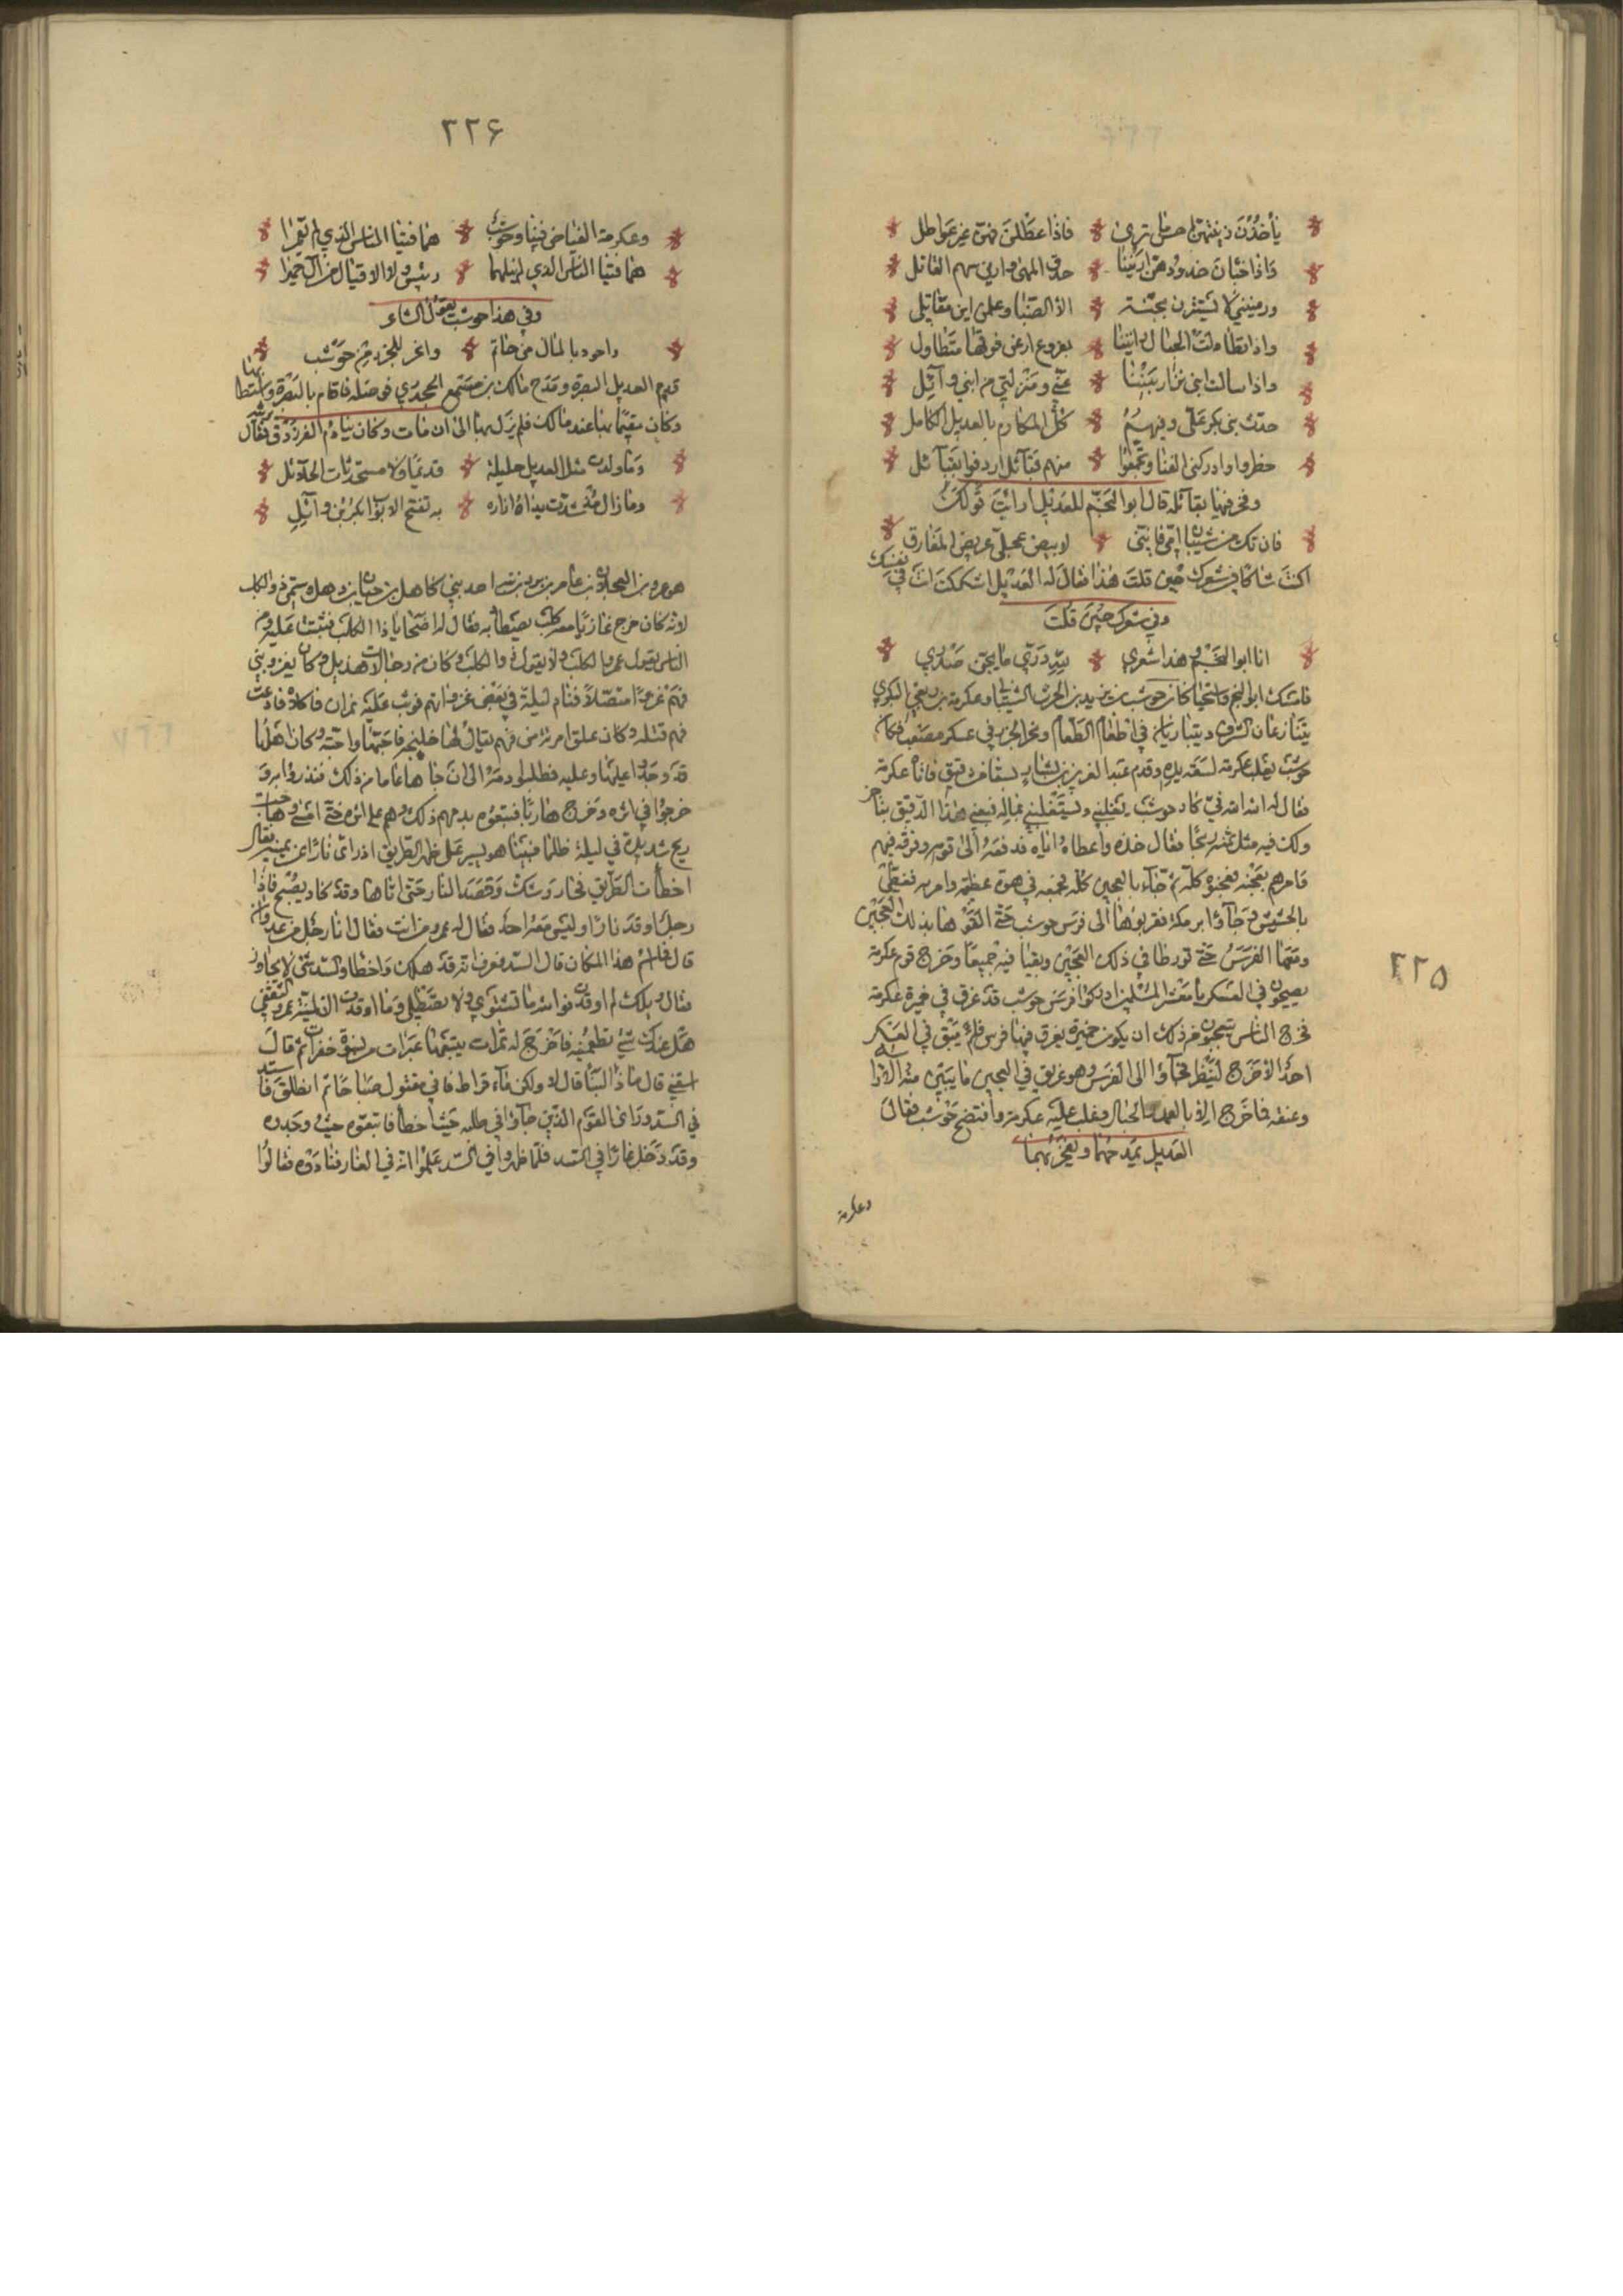 يأخذن زينتهن احسن ما ترى * فاذا عطلن فهن غير عواطل
واذا خبأن خدودهن اريننا * حدق المهى وارين سهم القاتل
ورمينني لا يستترن بجنة * الا الصبا وعلمن اين مقاتلي
واذا تطاولت الجبال راينا * بفروع ارعن فوقها متطاول
واذا سالت ابني نزار بينا * عني ومنزلتي من ابني وآئل
حدبت بنى بكر على وفيهم * كل المكارم بالعديل الكامل
خطروا ورآءي بالقنا وتجمعوا * منهم قبآئل اردفوا بقبآئل
وفخر فيها بقبآئله قال ابو النجم للعديل ارايت قولك
فان تك من شيبان امي فانني * لابيض عجلي عريض المفارق
اكنت شاكا في شعرك حين قلت هذا فقال له العديل اشككت انت في نفسك
وفي شعرك حين قلت
انا ابو النجم وهذا شعري * لله دري ما يجن صدري
فامسك ابو النجم واستحيا كان حوشب بن يزيد بن الحرث الشيباني وعكرمة بن ربعي البكري
يتنازعان الشرف ويتباريان في اطعام الطعام ونحر الجزر في عسكر مصعب فكان
حوشب يغلب عكرمة لسعة يده وقدم عبد العزيز بن بشار بسفائف دقيق فاتاه عكرمة
فقال له الله الله في كاد حوشب يغلبني ويستعليني بماله فبعني هذا الدقيق بتأخر
ولك فيه مثل ثمنه ربحا فقال خذه واعطاه اياه فدفعه الى قومه وفرقه فيهم
فامرهم بعجنه فعجنوه كله ثم جآء بالعجين كله فجمعه في هوة عظيمة وامر به فغطى
بالحشيش وجآؤا برمكة فقربوها الى فرس حوشب حتى القوها بذلك العجين
وتبعها الفرس حتى تورطا في ذلك العجين وبقيا فيه جميعا وخرج قوم عكرمة
يصيحون في العسكر يا معشر المسلمين ادركوا فرس حوشب قد غرق في خميرة عكرمة
فخرج الناس تعجبا من ذلك ان يكون خميرة يغرق فيها فرس فلم يبق في العسكر
احد الا خرج لينظر فجآؤا الى الفرس وهو غريق في العجين ما يبين منه الا راسه
وعنقه فما خرج الا بالعمد والحبال وغلب عليه عكرمة وافتضح حوشب فقال
العديل يمدحهما ويفخر بهما
وعكرمة
٢٢٥
٢٢۶
وعكرمة الفياض فينا وحوشب * هما فتيا الناس الذي لم يغمرا
هما فتيا الناس الذي لم ينلهما * رئيس ولا الاقيال من آل حميرا
وفي هذا حوشب يقول الشاعر
واجود بالمال من حاتم * وانحر للجزر من حوشب
قدم العديل البصرة ومدح مالك بن مسمع الجحدري فوصله فاقام بالبصرة واستطابها
وكان مقيما بها عند مالك فلم يزل بها الى ان مات وكان ينادم الفرزدق فقال يرثيه
وما ولدت مثل العديل حليلة * قديما ولا مستحدثات الحلآئل
وما زال مذ شدت يداه ازاره * به تفتح الابواب بكر بن وآئل
هو عمرو بن العجلان بن عامر بن برد بن منبه احد بني كاهل بن حيان بن هذيل وسمي ذو الكلب
لانه كان خرج غازيا معه كلب يصيطاد به فقال له اصحابه يا ذا الكلب فثبت عليه ومن
الناس يقول عمرو الكلب ولا يقول ذو الكلب وكان من رجالات هذيل وكان يغزو بني
فهم غزوا متصلا فنام ليلة في بعض غزواته فوثب عليه نمران فاكلاه فادعت
فهم قتله وكان علق امرئة من فهم يقال لها ام جليحة فاحبها واحبته وكان اهلها
قد وجدوا عليها وعليه وطلبوا دمه الى ان جاها عاما من ذلك فنذروا به وقد
خرجوا في اثره وخرج هاربا فتبعوه يومهم ذلك وهم على اثره حتى امسى وهاجت
ريح شديدة في ليلة ظلماء فبينا هو يسير على ظهر الطريق اذ راى نارا عن يمينه فقال
اخطأت الطريق فحار وشك وقصد النار حتى اتاها وقد كاد يصبح فاذا
رجل اوقد نارا وليس معه احد فقال له عمرو من انت فقال انا رجل من عدوان
قال فما اسم هذا المكان قال السد فعرف انه قد هلك واخطا والسد شئ لا يجاوز
فقال ويلك لم اوقدت فوالله ما تشتوي ولا تصطلي وما اوقدت الا لمنية عمرو الشقي
هل عندك شئ تطعمنيه فاخرج له تمرات يتبعها عبرات من نسوة خفرات ثم قال
اسقني قال ماذا البنا قال لا ولكن مآء قراحا فاني مقتول صباحا ثم انطلق فاسند
في السد وراى القوم الذين جآؤا في طلبه حيث اخطأ فاتبعوه حيث وجدوه
وقد دخل غارا في السد فلما ظهروا في السد علموا انه في الغار فنادوه فقالوا